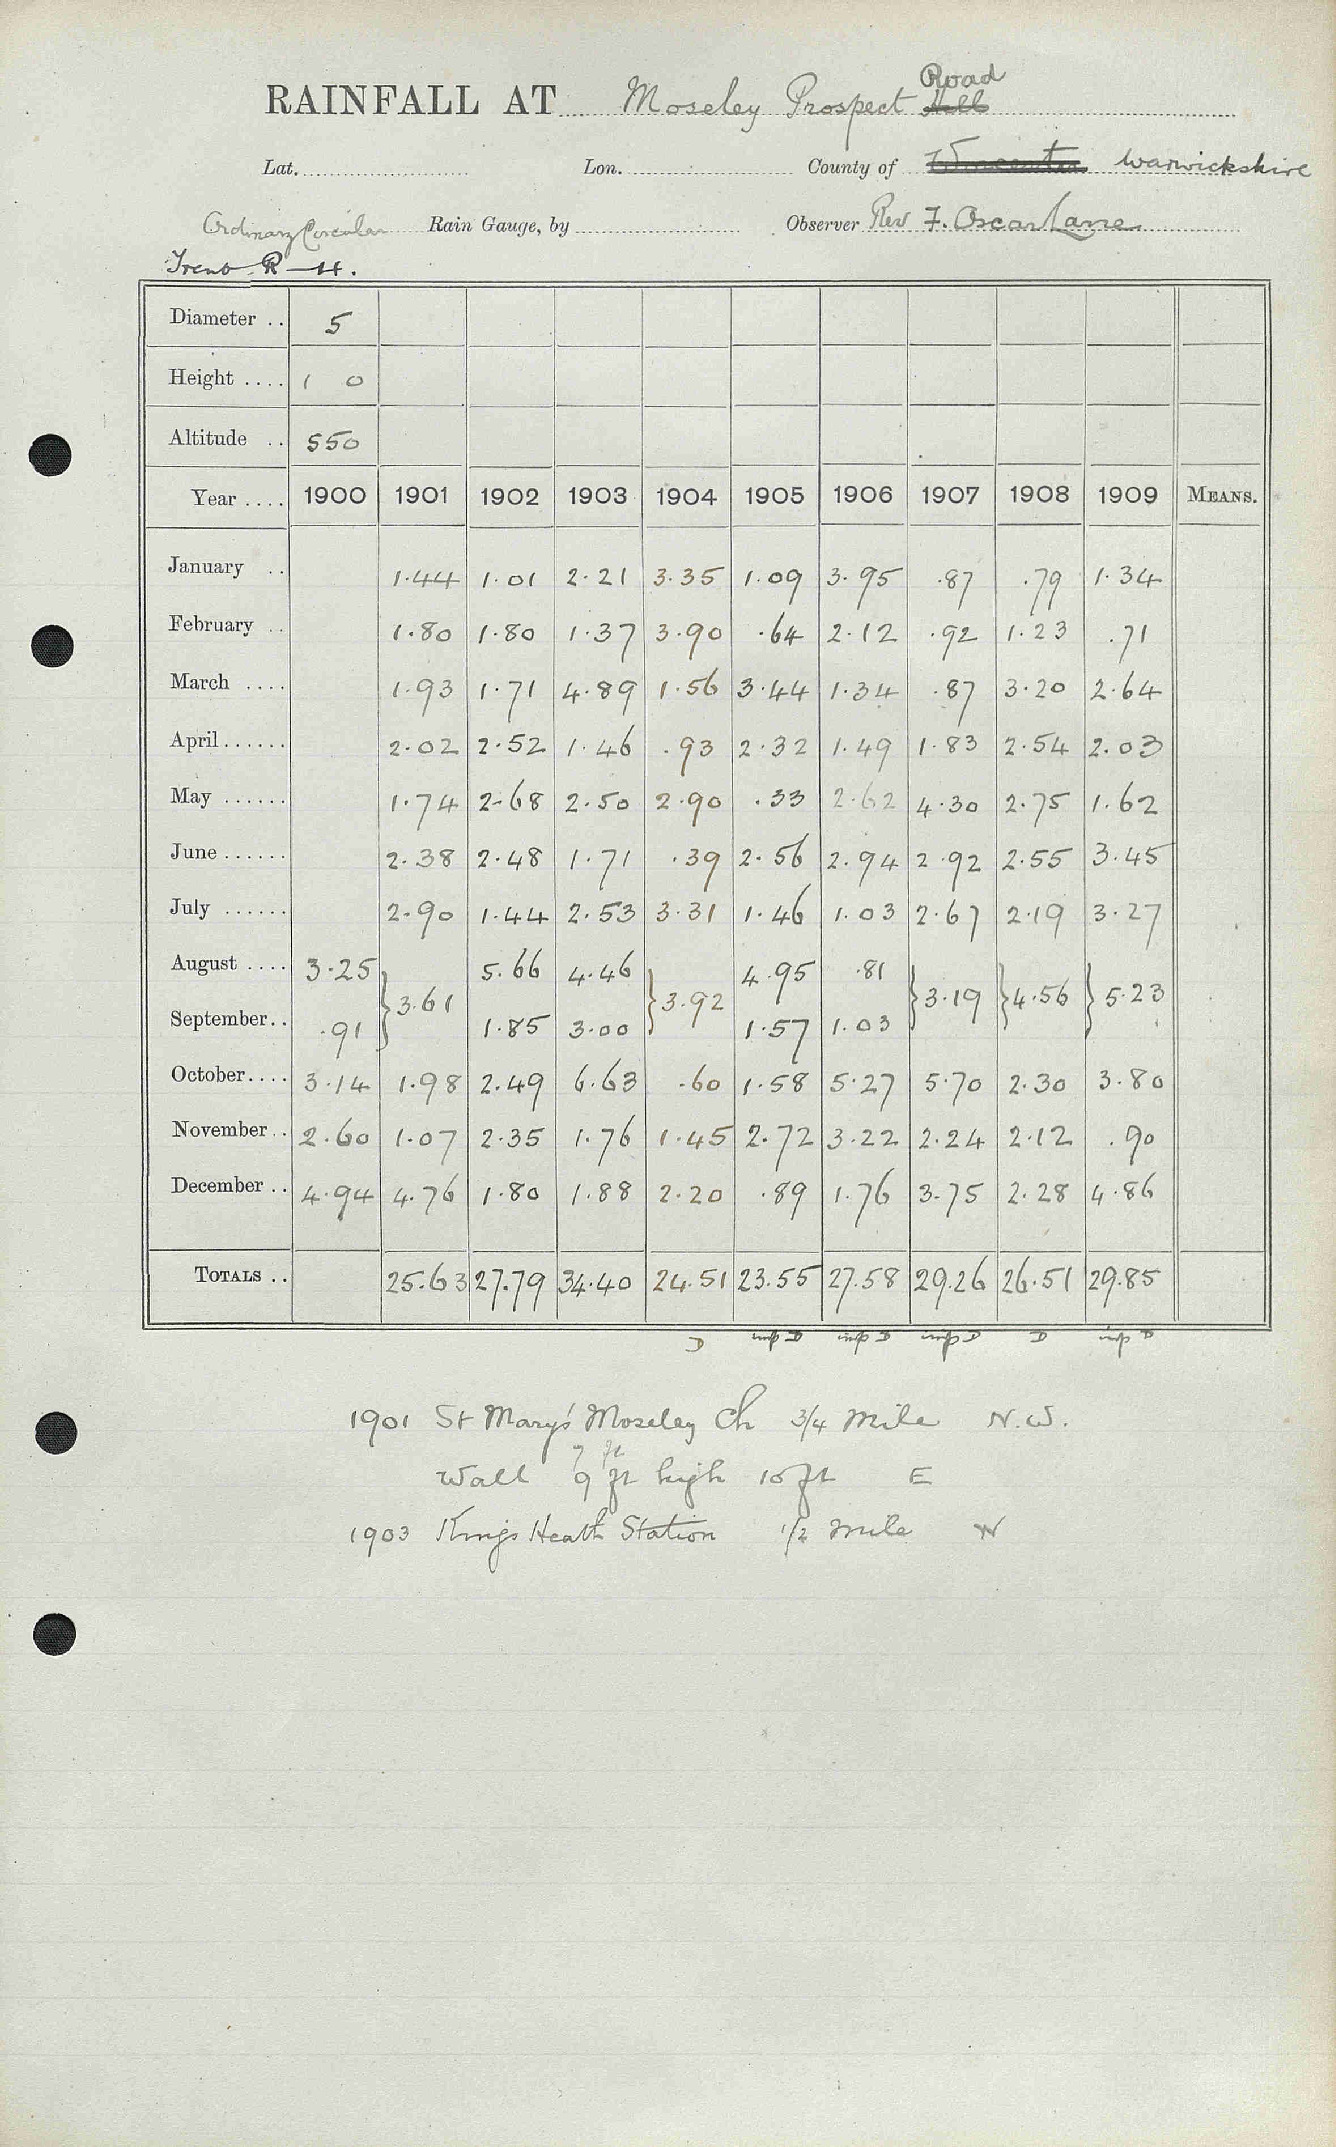 RAINFALL AT Moseley Prospect Road Hill
Lat. Lon. County of Worcester Warwickshire
Ordinary Circular Rain Gauge, by Observer Rev F. Oscar Lane
Trent R-H.
Diameter .. 5
Height .... 1 0
Altitude .. 550
Year .... 1900 1901 1902 1903 1904 1905 1906 1907 1908 1909 MEANS.
January .. 1.44 1.01 2.21 3.35 1.09 3.95 .87 .79 1.34
February .. 1.80 1.80 1.37 3.90 .64 2.12 .92 1.23 .71
March .... 1.93 1.71 4.89 1.56 3.44 1.34 .87 3.20 2.64
April...... 2.02 2.52 1.46 .93 2.32 1.49 1.83 2.54 2.03
May ...... 1.74 2.68 2.50 2.90 .33 2.62 4.30 2.75 1.62
June...... 2.38 2.48 1.71 .39 2.56 2.94 2.92 2.55 3.45
July ...... 2.90 1.44 2.53 3.31 1.46 1.03 2.67 2.19 3.27
August .... 3.25 5.66 4.46 4.95 .81
} 3.61 } 3.92 } 3.19 } 4.56 } 5.23
September.. .91 1.85 3.00 1.57 1.03
October.... 3.14 1.98 2.49 6.63 .60 1.58 5.27 5.70 2.30 3.80
November.. 2.60 1.07 2.35 1.76 1.45 2.72 3.22 2.24 2.12 .90
December.. 4.94 4.76 1.80 1.88 2.20 .89 1.76 3.75 2.28 4.86
TOTALS .. 25.63 27.79 34.40 24.51 23.55 27.58 29.26 26.51 29.85
D imp D imp D imp D D imp D
1901 St Mary's Moseley Ch 3/4 mile N.W.
7 ft
Wall 9 ft high 10 ft E
1903 Kings Heath Station 1/2 mile W